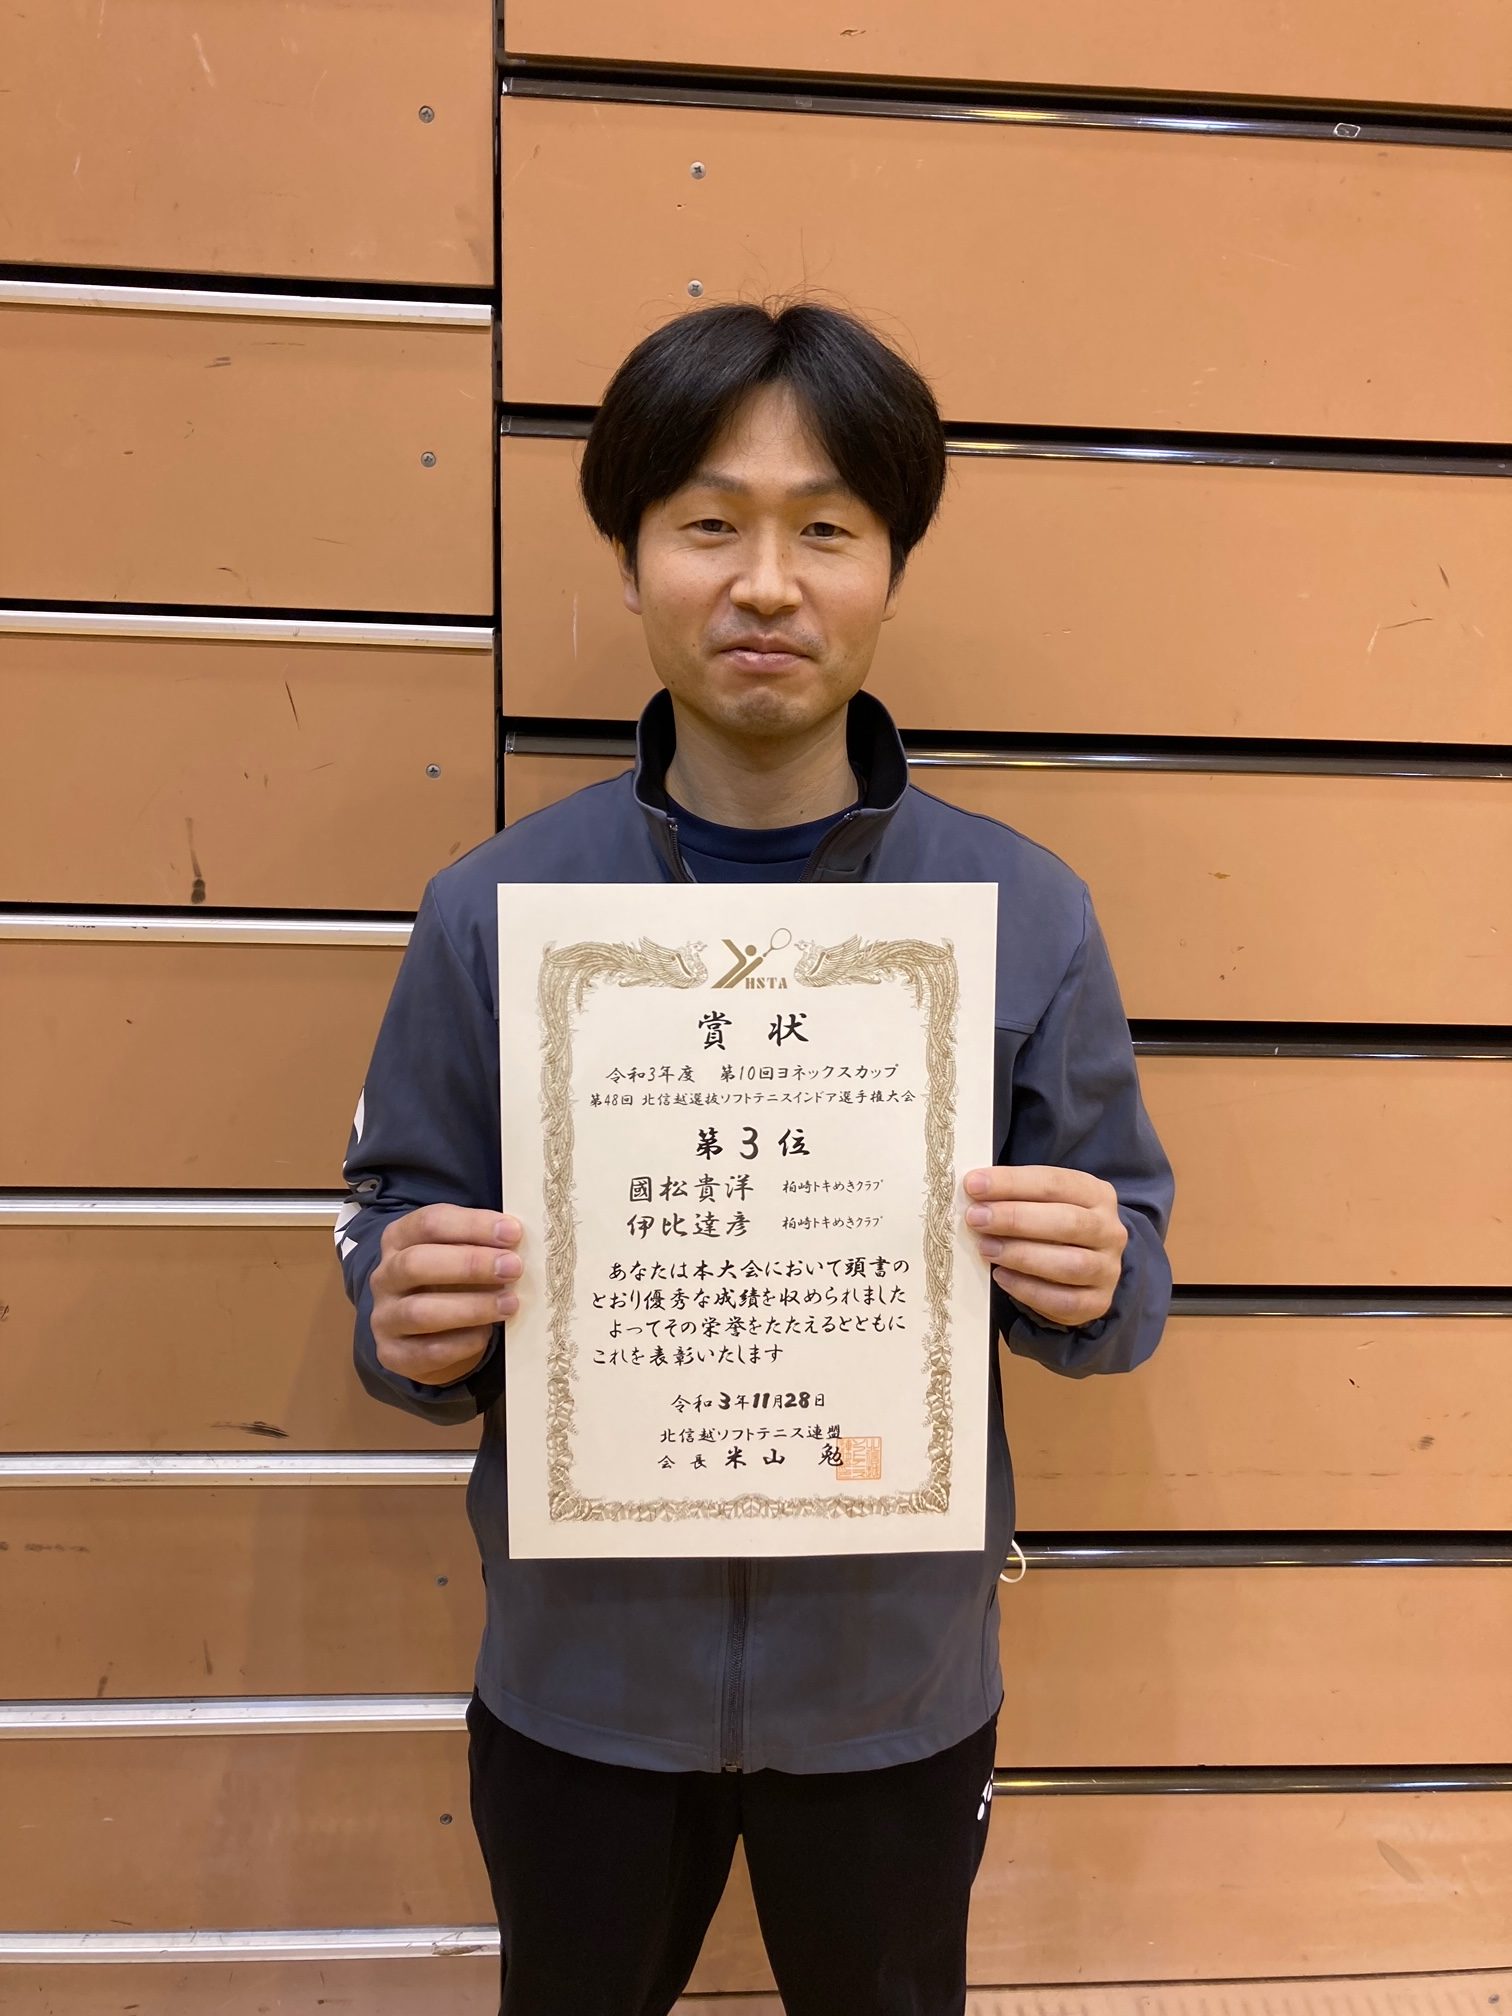 HSTA
賞状
令和3年度 第10回ヨネックスカップ
第48回 北信越選抜ソフトテニスインドア選手権大会
第3位
國松貴洋 柏崎トキめきクラブ
伊比達彦 柏崎トキめきクラブ
あなたは本大会において頭書の
とおり優秀な成績を収められました
よってその栄誉をたたえるとともに
これを表彰いたします
令和3年11月28日
北信越ソフトテニス連盟
会長 米山 勉